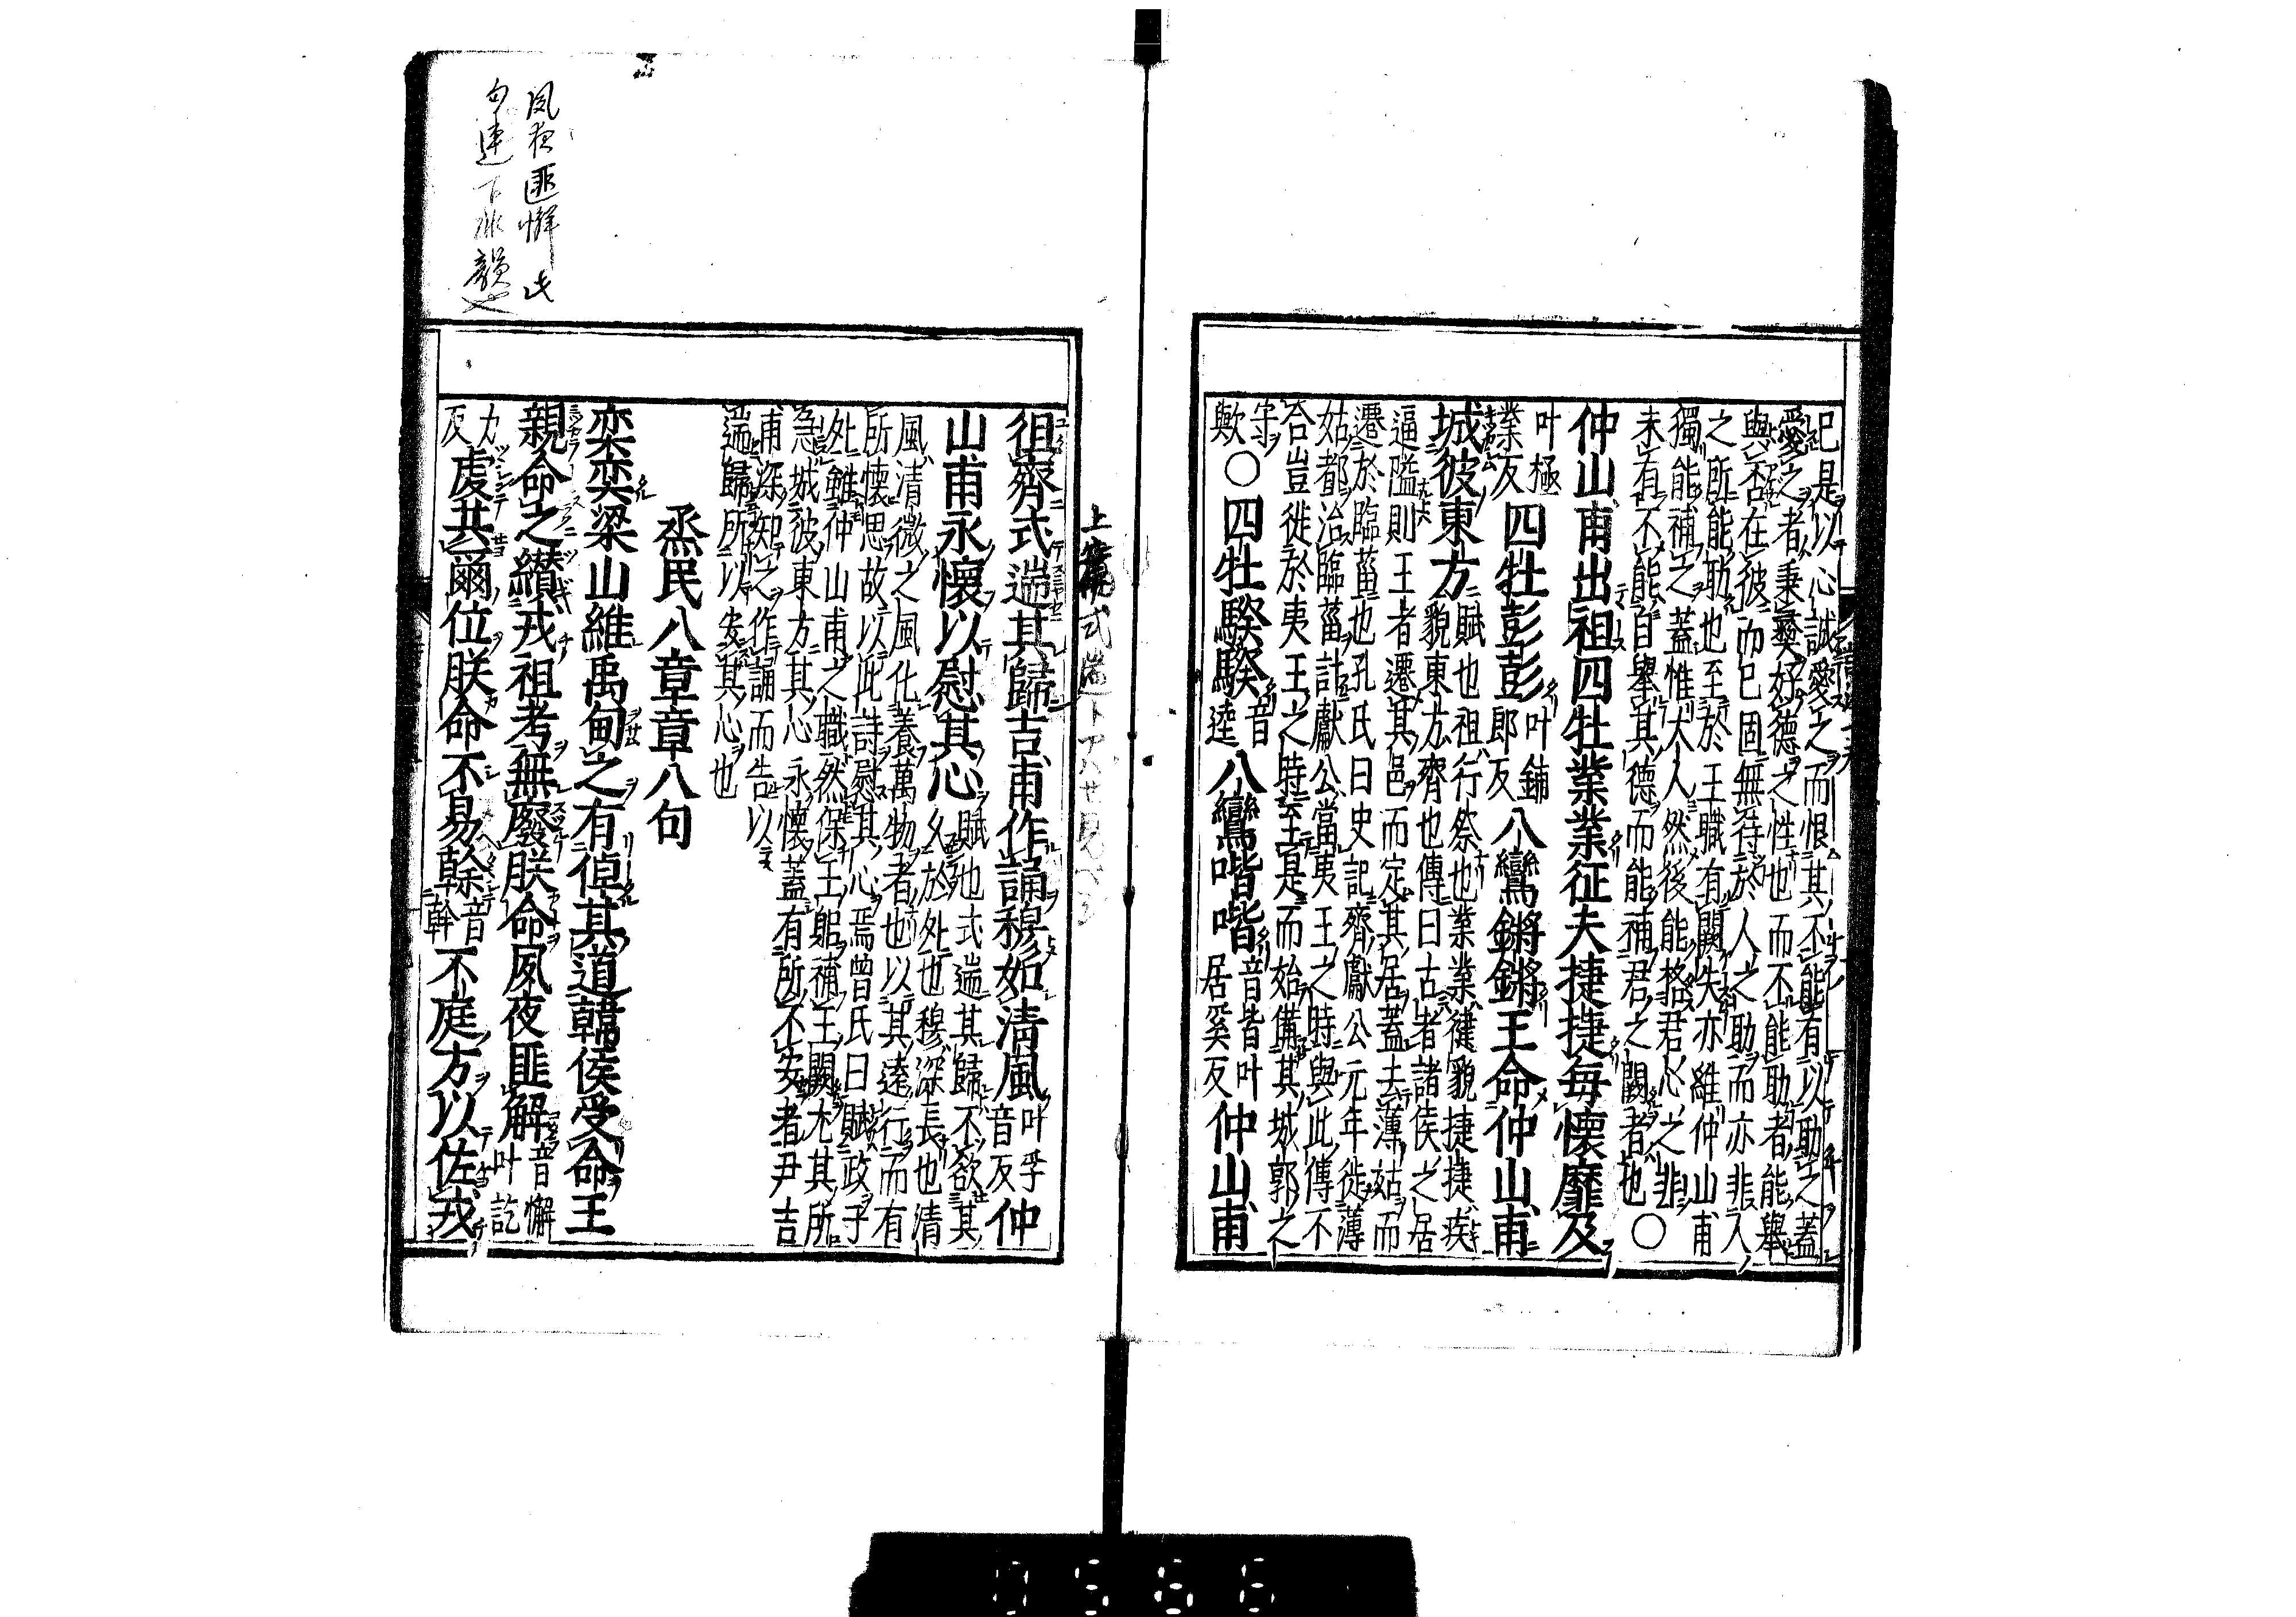 已是以心誠愛之而恨其不能有以助之蓋
愛之者秉彝好德之性也而不能助者能舉
與否在彼而已固無待於人之助而亦非人
之所能助也至於王職有闕失亦維仲山甫
獨能補之蓋惟大人然後能格君心之非
未有不能自舉其德而能補君之闕者也〇
仲山甫出祖四牡業業征夫捷捷每懷靡及
叶極業反四牡彭彭叶鋪郎反八鸞鏘鏘王命仲山甫
城彼東方賦也祖行祭也業業健貌捷捷疾
貌東方齊也傳曰古者諸侯之居
逼隘則王者遷其邑而定其居蓋去薄姑而
遷於臨菑也孔氏曰史記齊獻公元年徙薄
姑都治臨菑計獻公當夷王之時與此傳不
合豈徙於夷王之時至是而始備其城郭之
守歟〇四牡騤騤音逵八鸞喈喈音皆叶居奚反仲山甫
徂齊式遄其歸吉甫作誦穆如清風叶孚音反仲
山甫永懷以慰其心賦也式遄其歸不欲其
久於處也穆深長也清
風清微之風化養萬物者也以其遠行而有
所懷思故以此詩慰其心焉曾氏曰賦政于
外雖仲山甫之職然保王躬補王闕尤其所
急城彼東方其心永懷蓋有所不安者尹吉
甫深知之作誦而告以
遄歸所以安其心也
烝民八章章八句
奕奕梁山維禹甸之有倬其道韓侯受命王
親命之纘戎祖考無廢朕命夙夜匪解音懈叶訖
力反虔共爾位朕命不易榦音幹不庭方以佐戎
夙夜匪懈此
句連下為韻